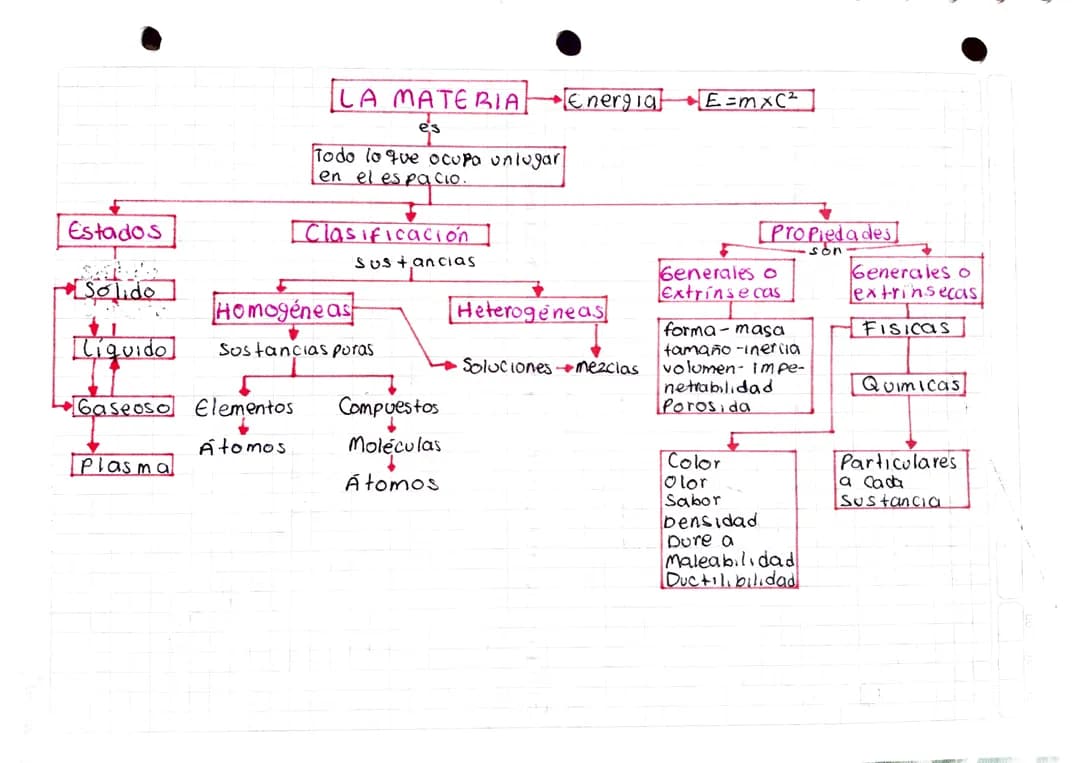 LA MATERIA
Energia
E=mxC²
es
Todo lo que ocupa un lugar
en el espacio.
Estados
Sólido
Líquido
Gaseoso
Plasma
Clasificación
Sustancias
Homogéneas
Heterogéneas
Sustancias puras
Soluciones
mezclas
Elementos
Compuestos
Átomos
Moléculas
Átomos
Propiedades
són
Generales o
Extrínsecas
Generales o
extrinsecas
forma-masa
tamaño-inercia
volumen-impe-
netrabilidad
Porosida
Fisicas
Quimicas
Color
Olor
Sabor
Densidad
Dure a
Maleabilidad
Ductilibilidad
Particulares
a cada
sustancia